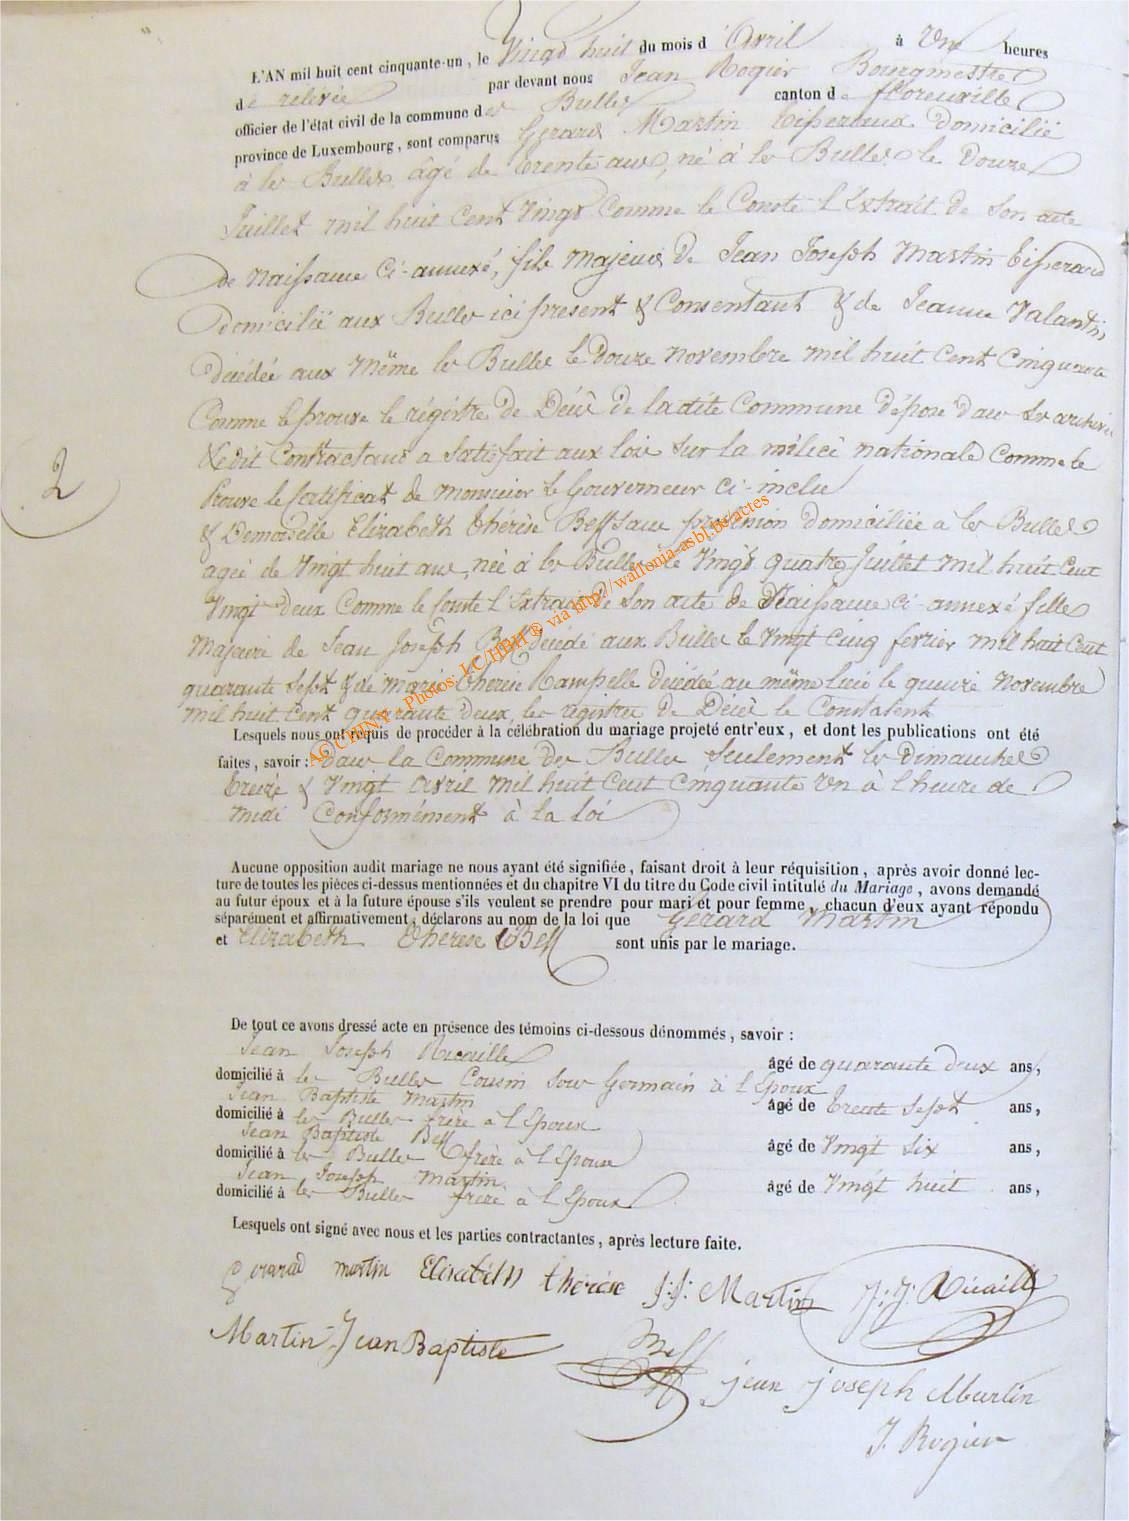 L'AN mil huit cent cinquante-un, le Vingt huit du mois d'Avril à Une heures
de relevée par devant nous Jean Rogier Bourgmestre
officier de l'état civil de la commune des Bulles canton de florenville
province de Luxembourg, sont comparus Gerard Martin tisserand Domicilié
à les Bulles âgé de trente ans, né à les Bulles le Douze
Juillet mil huit Cent Vingt Comme le Conste l'Extrait de Son acte
de Naissance Ci-annexé, fils Majeur de Jean Joseph Martin tisserand
Domicilié aux Bulles ici present & Consentant & de Jeanne Valantin
Décédée aux Même les Bulles le Douze Novembre mil huit Cent Cinquante
Comme le prouve le régistre de Décès de la dite Commune déposé dans les archives
Ledit Contractant a Satisfait aux lois Sur la milice nationale Comme le
Prouve le Certificat de Monsieur le Gouverneur Ci-inclu
& Demoiselle Elizabeth thérèse Beff Sans profession domiciliée à les Bulles
agée de Vingt huit ans, née à les Bulles le Vingt quatre Juillet Mil huit Cent
Vingt Deux Comme le Conste l'Extrait de Son acte de Naissance Ci-annexé fille
Majeure de Jean Joseph Beff décédé aux Bulles le Vingt Cinq fevrier mil huit Cent
quarante Sept & de Marie thérèse Rampelle décédée au même lieu le quinze Novembre
mil huit Cent quarante deux, les régistres de Décès le Constatent
Lesquels nous ont requis de procéder à la célébration du mariage projeté entr'eux, et dont les publications ont été
faites, savoir : dans la Commune des Bulles Seulement les Dimanches
treize & Vingt Avril Mil huit Cent Cinquante Un à l'heure de
midi Conformément à la Loi
2
AQCHINY - Photos: LC/HBH ® via http://wallonia-asbl.be/actes
Aucune opposition audit mariage ne nous ayant été signifiée, faisant droit à leur réquisition, après avoir donné lec-
ture de toutes les pièces ci-dessus mentionnées et du chapitre VI du titre du Code civil intitulé du Mariage, avons demandé
au futur époux et à la future épouse s'ils veulent se prendre pour mari et pour femme, chacun d'eux ayant répondu
séparément et affirmativement, déclarons au nom de la loi que Gérard Martin
et Elizabeth therese Beff sont unis par le mariage.
De tout ce avons dressé acte en présence des témoins ci-dessous dénommés, savoir :
Jean Joseph Ricaille âgé de quarante deux ans,
domicilié à les Bulles Cousin Sous Germain à l'Epoux
Jean Baptiste Martin âgé de trente Sept ans,
domicilié à les Bulles frère à l'Epoux
Jean Baptiste Beff âgé de Vingt Six ans,
domicilié à les Bulles frère à l'Epouse
Jean Joseph Martin âgé de Vingt huit ans,
domicilié à les Bulles frère à l'Epoux
Lesquels ont signé avec nous et les parties contractantes, après lecture faite.
gerard martin Elisabeth thérèse J:J: Martin J:J: Ricaille
Martin Jean Baptiste Beff jean joseph Martin
J. Rogier